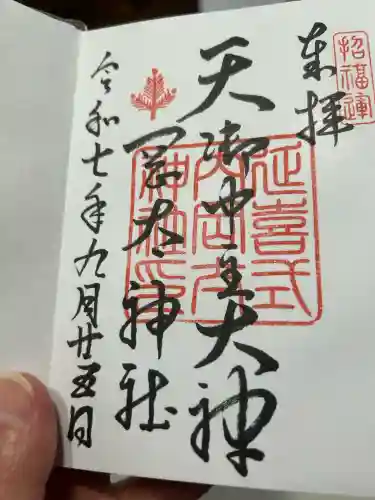 招福運
奉拝
天御中主大神
延喜式
岡太神社
神社印
令和七年九月廿五日